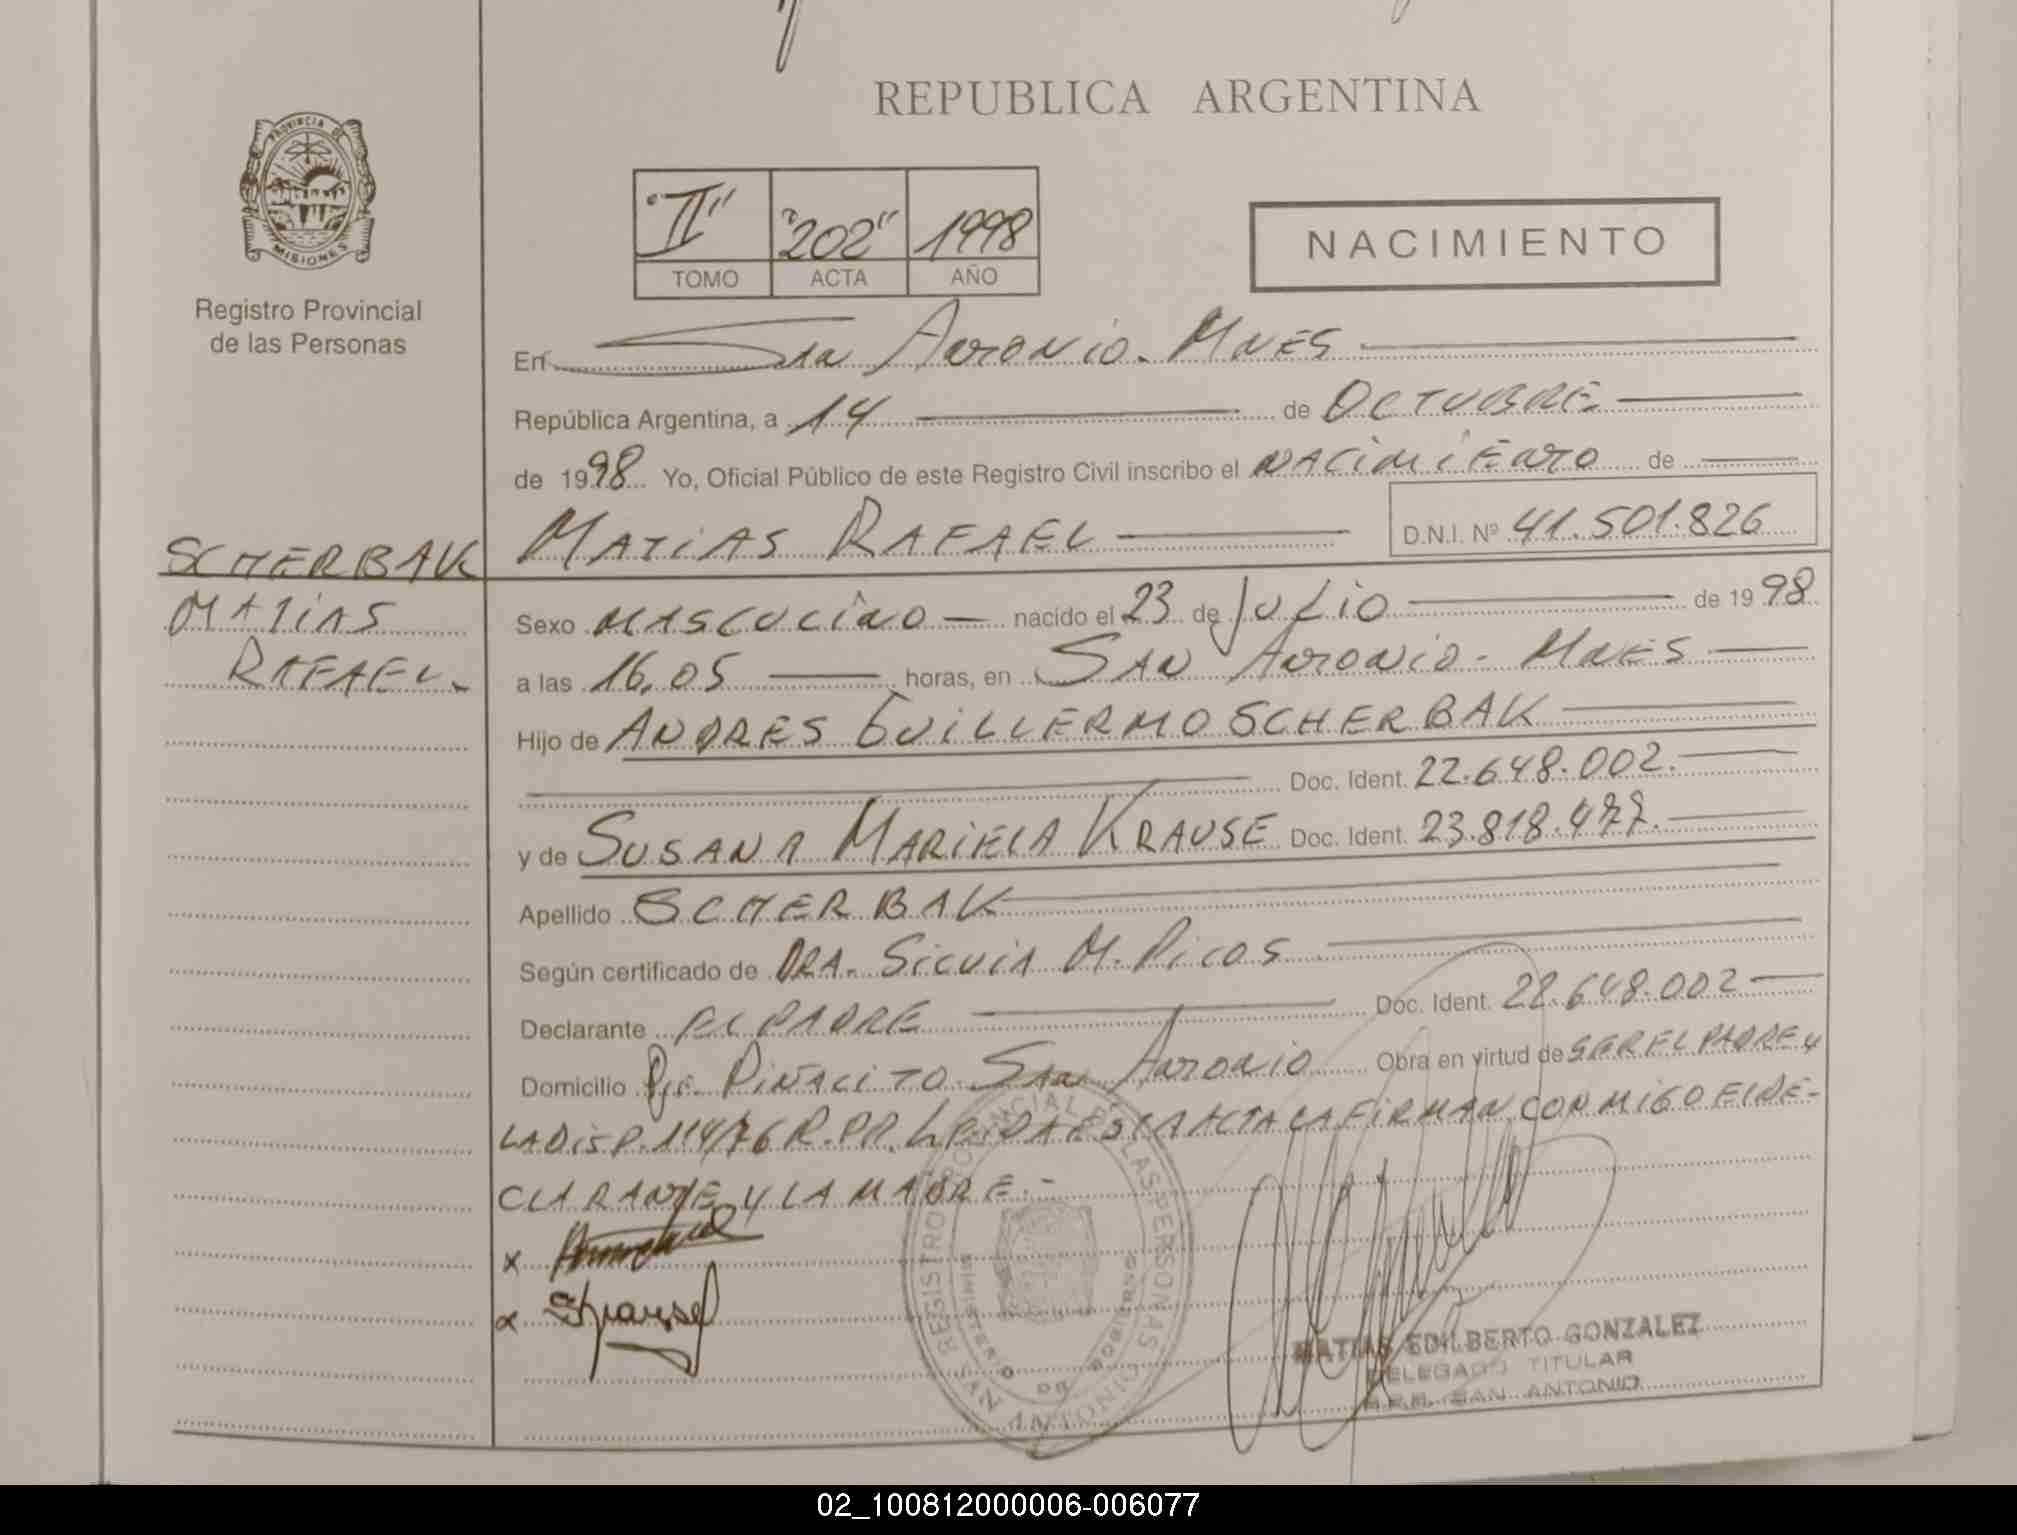 REPUBLICA ARGENTINA
PROVINCIA DE
MISIONES
Registro Provincial
de las Personas
"II" "202" 1998
TOMO ACTA AÑO
NACIMIENTO
En San Antonio - Mnes
República Argentina, a 14 de OCTUBRE
de 1998 Yo, Oficial Público de este Registro Civil inscribo el NACIMIENTO de
MATIAS RAFAEL D.N.I. Nº 41.501.826
SCHERBAK
MATIAS
RAFAEL.-
Sexo MASCULINO nacido el 23 de JULIO de 1998
a las 16,05 horas, en SAN ANTONIO - MNES
Hijo de ANDRES GUILLERMO SCHERBAK
Doc. Ident. 22.648.002.
y de SUSANA MARIELA KRAUSE Doc. Ident. 23.818.477.
Apellido SCHERBAK
Según certificado de DRA. SILVIA M. PICOS
Declarante EL PADRE Doc. Ident. 22.648.002
Domicilio Pje. PIÑALITO SAN ANTONIO Obra en virtud de SER EL PADRE y
LA DISP. 114/76 R.PP. LEIDA ESTA ACTA LA FIRMAN CONMIGO EL DE-
CLARANTE Y LA MADRE.-
x
x
REGISTRO PROVINCIAL DE LAS PERSONAS
MINISTERIO DE GOBIERNO
SAN ANTONIO
MATIAS EDILBERTO GONZALEZ
DELEGADO TITULAR
R.P.P. SAN ANTONIO
02_100812000006-006077